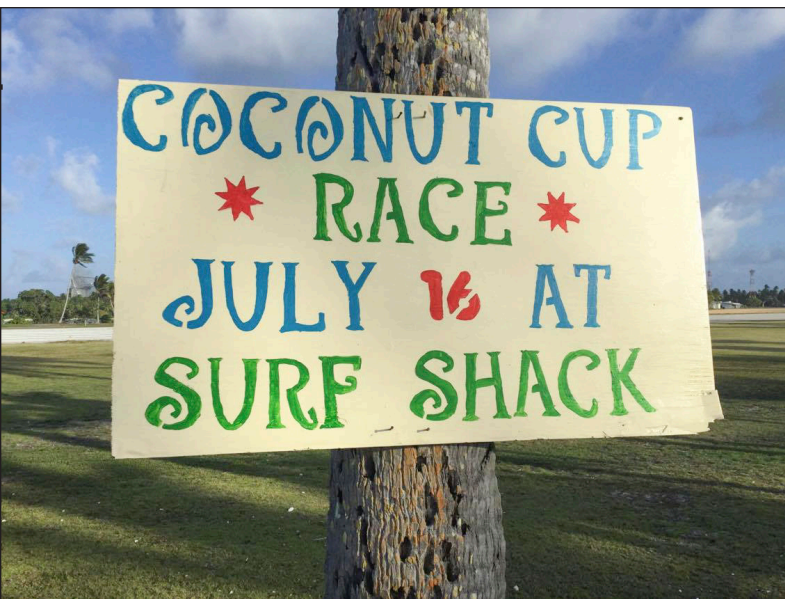 COCONUT CUP
RACE
JULY 16 AT
SURF SHACK